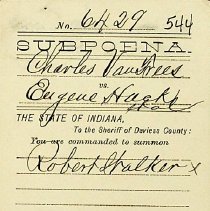 No. 6429 544
SUBPOENA.
Charles VanTrees
vs.
Eugene Hack
THE STATE OF INDIANA,
To the Sheriff of Daviess County:
You are commanded to summon
Robert Stalker x